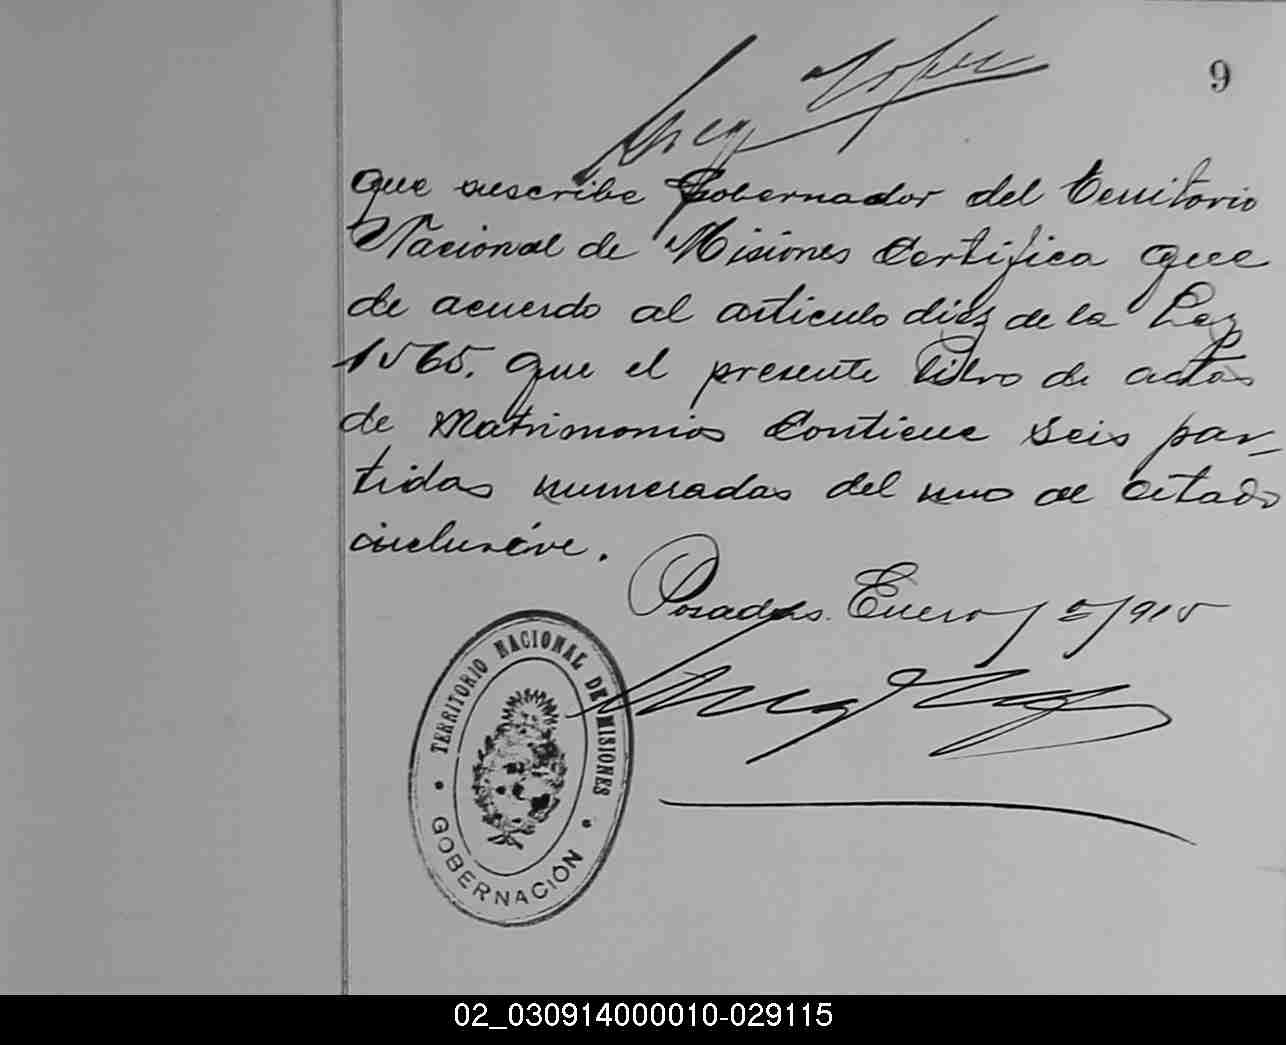 9
que suscribe Gobernador del Territorio
Nacional de Misiones Certifica que
de acuerdo al articulo diez de la Ley
1565. que el presente libro de actas
de Matrimonios Contiene seis par-
tidas numeradas del uno al citado
inclusive.
Posadas. Enero / 5/915
TERRITORIO NACIONAL DE MISIONES
GOBERNACIÓN
02_030914000010-029115